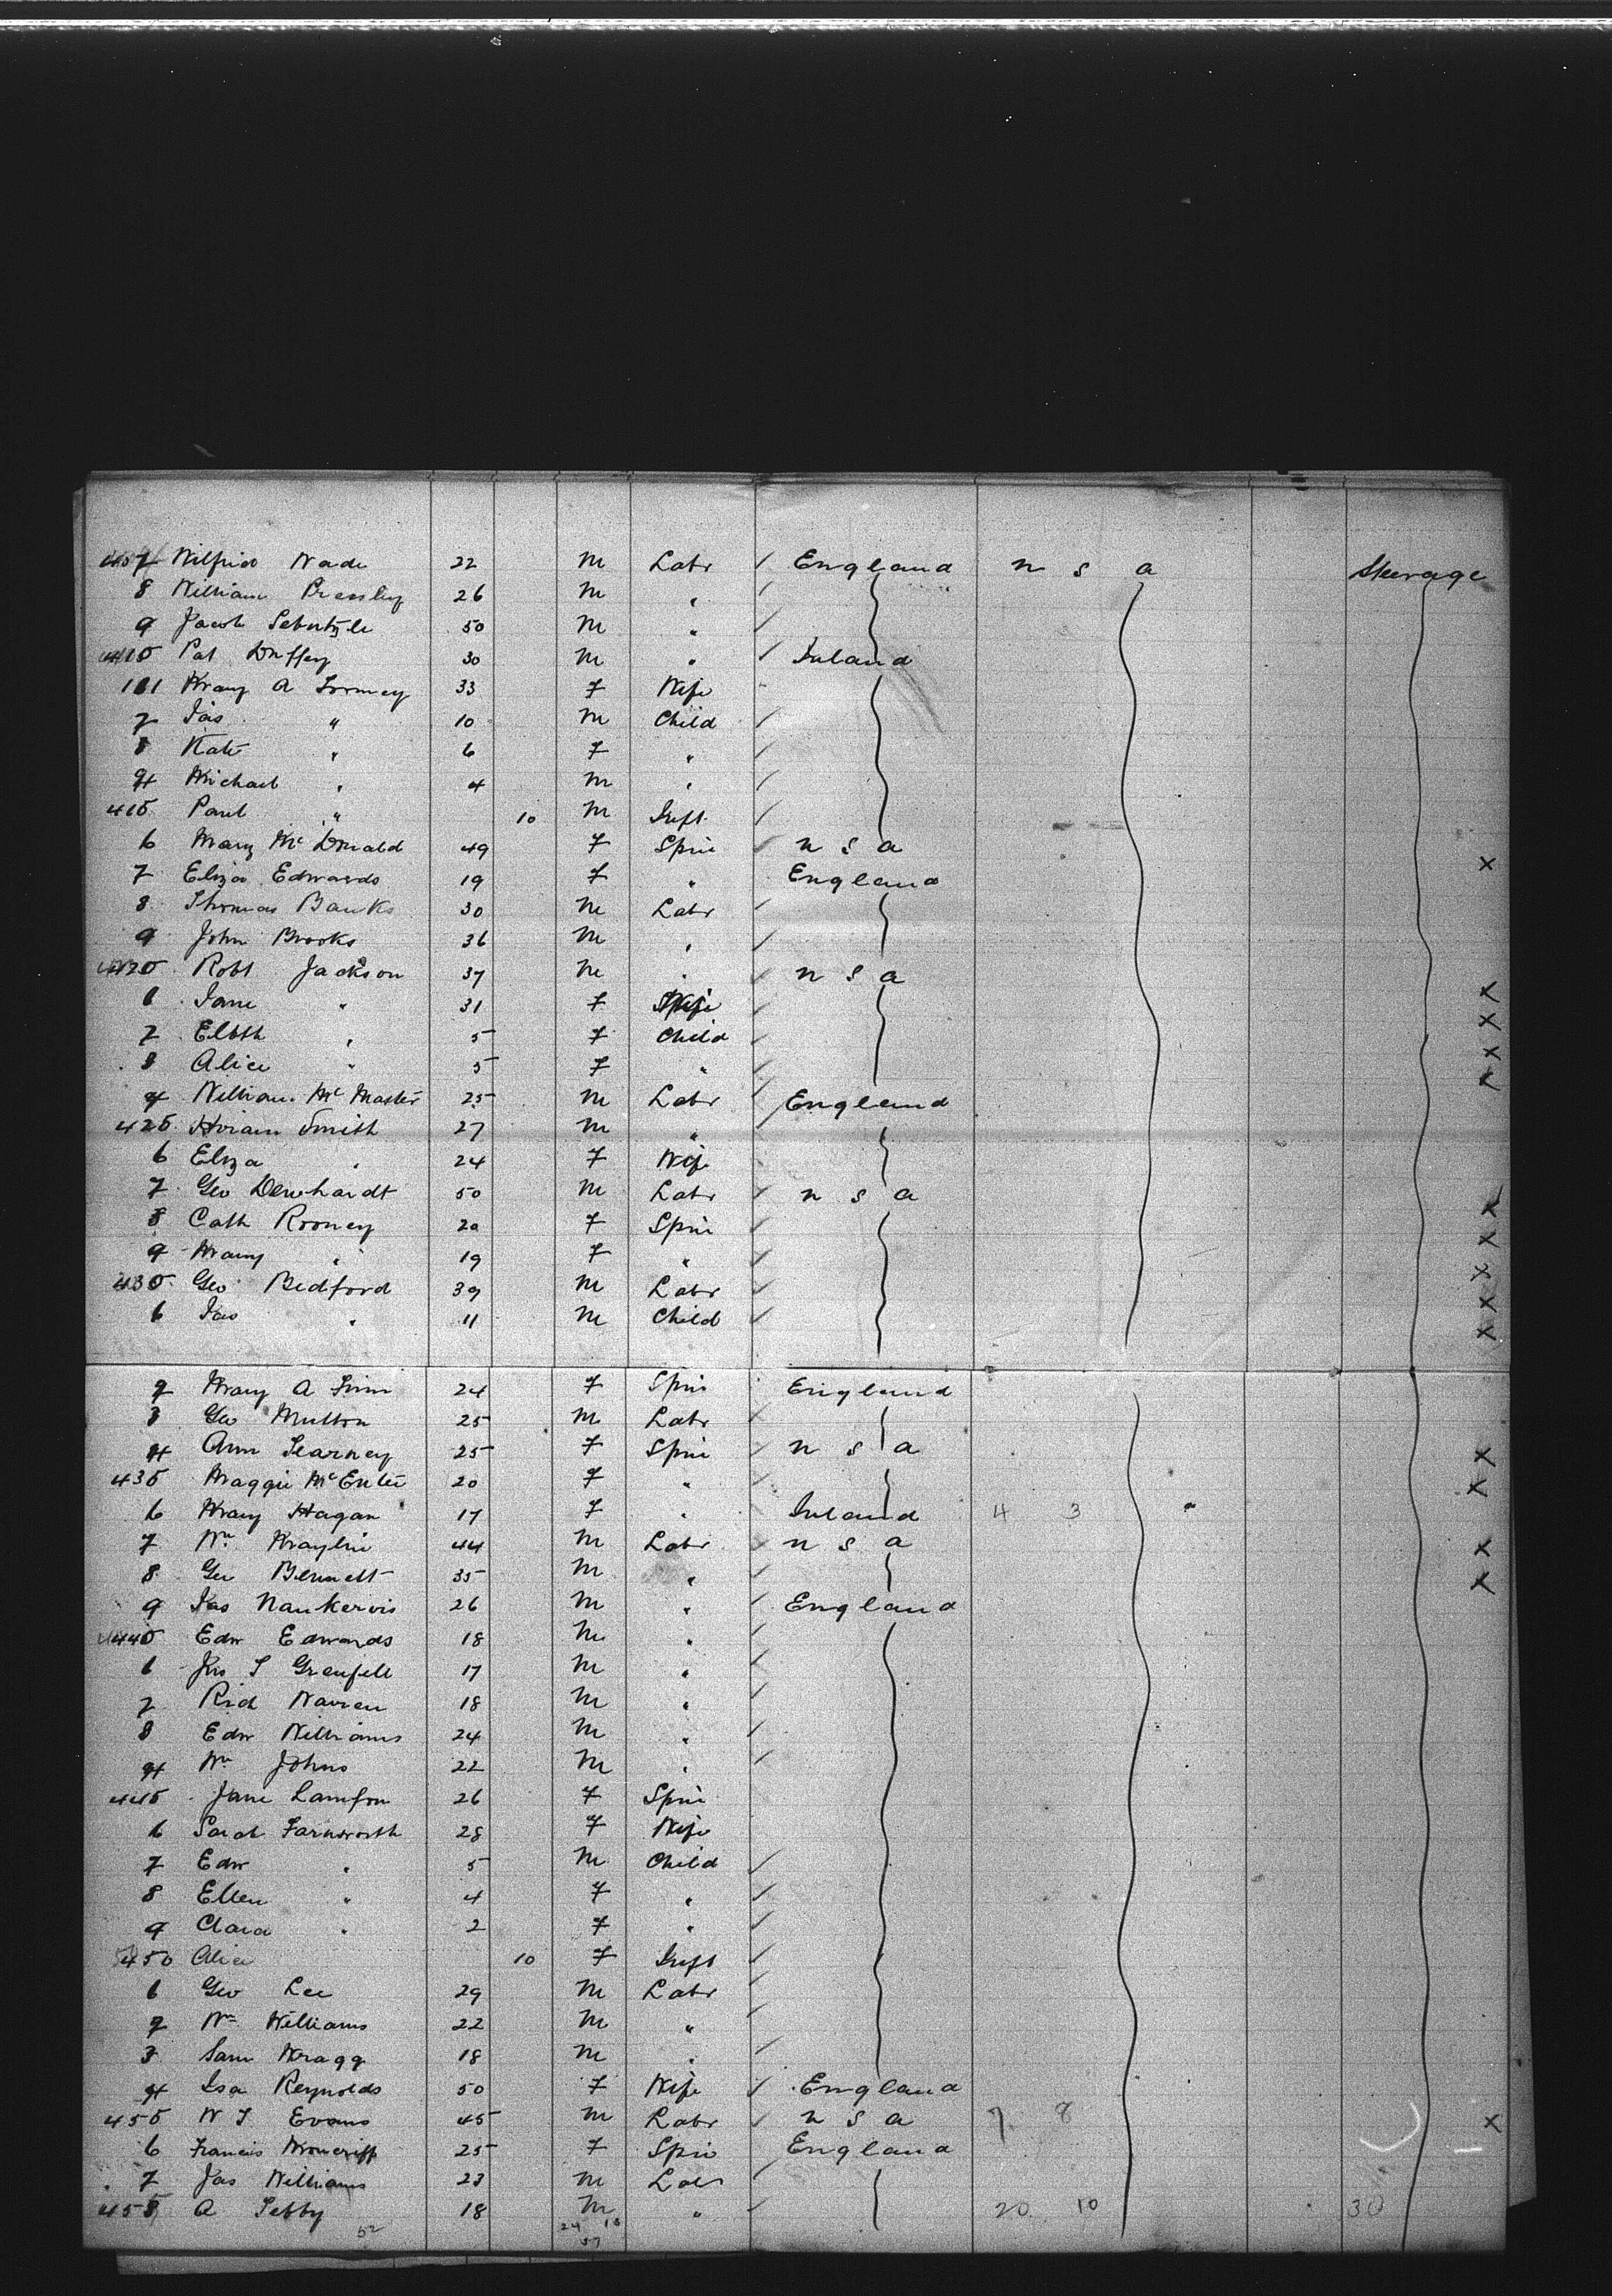 407 Wilfrid Wade 22 M Labr / England U S A Steerage
8 William Pressley 26 M " /
9 Jacob 50 M " /
410 Pat Duffey 30 M " / Ireland
1 Mary A Tormey 33 F Wife
2 Jas " 10 M Child /
3 Kate " 6 F " /
4 Michael " 4 M " /
415 Paul " 10 M Inft /
6 Mary McDonald 49 F Spin / U S A X
7 Eliza Edwards 19 F " / England
8 Thomas Banks 30 M Labr /
9 John Brooks 36 M " /
420 Robt Jackson 37 M " / U S A X
1 Jane " 31 F Wife / X
2 Elbth " 5 F Child / X
3 Alice " 5 F " / X
4 William McMaster 25 M Labr / England
425 Hiram Smith 27 M " /
6 Eliza " 24 F Wife
7 Geo Denhardt 50 M Labr / U S A X
8 Cath Rooney 20 F Spin / X
9 Mary " 19 F " / X
430 Geo Bedford 39 M Labr / X
1 Jas " 11 M Child / X
2 Mary A Finn 24 F Spin England
3 Geo Mutton 25 M Labr /
4 Ann Kearney 25 F Spin / U S A X
435 Maggie McEntee 20 F " / X
6 Mary Hagan 17 F " Ireland 4 3
7 Wm 44 M Labr / U S A X
8 Geo Bennett 35 M " / X
9 Jas Nankervis 26 M " / England
440 Edw Edwards 18 M " /
1 Jno T Grenfell 17 M " /
2 Rich Warren 18 M " /
3 Edw Williams 24 M " /
4 Wm Johns 22 M " /
445 Jane 26 F Spin
6 Sarah Farnworth 28 F Wife
7 Edw " 5 M Child /
8 Ellen " 4 F " /
9 Clara " 2 F " /
450 Alice 10 F Inft /
1 Geo Lee 29 M Labr /
2 Wm Williams 22 M " /
3 Sam Wragg 18 M " /
4 Isa Reynolds 50 F Wife / England
455 W J Evans 45 M Labr / U S A 7 8 X
6 Francis 25 F Spin / England
7 Jas Williams 23 M Labr /
458 A Tebby 18 M " / 20 10 30
52 24 18